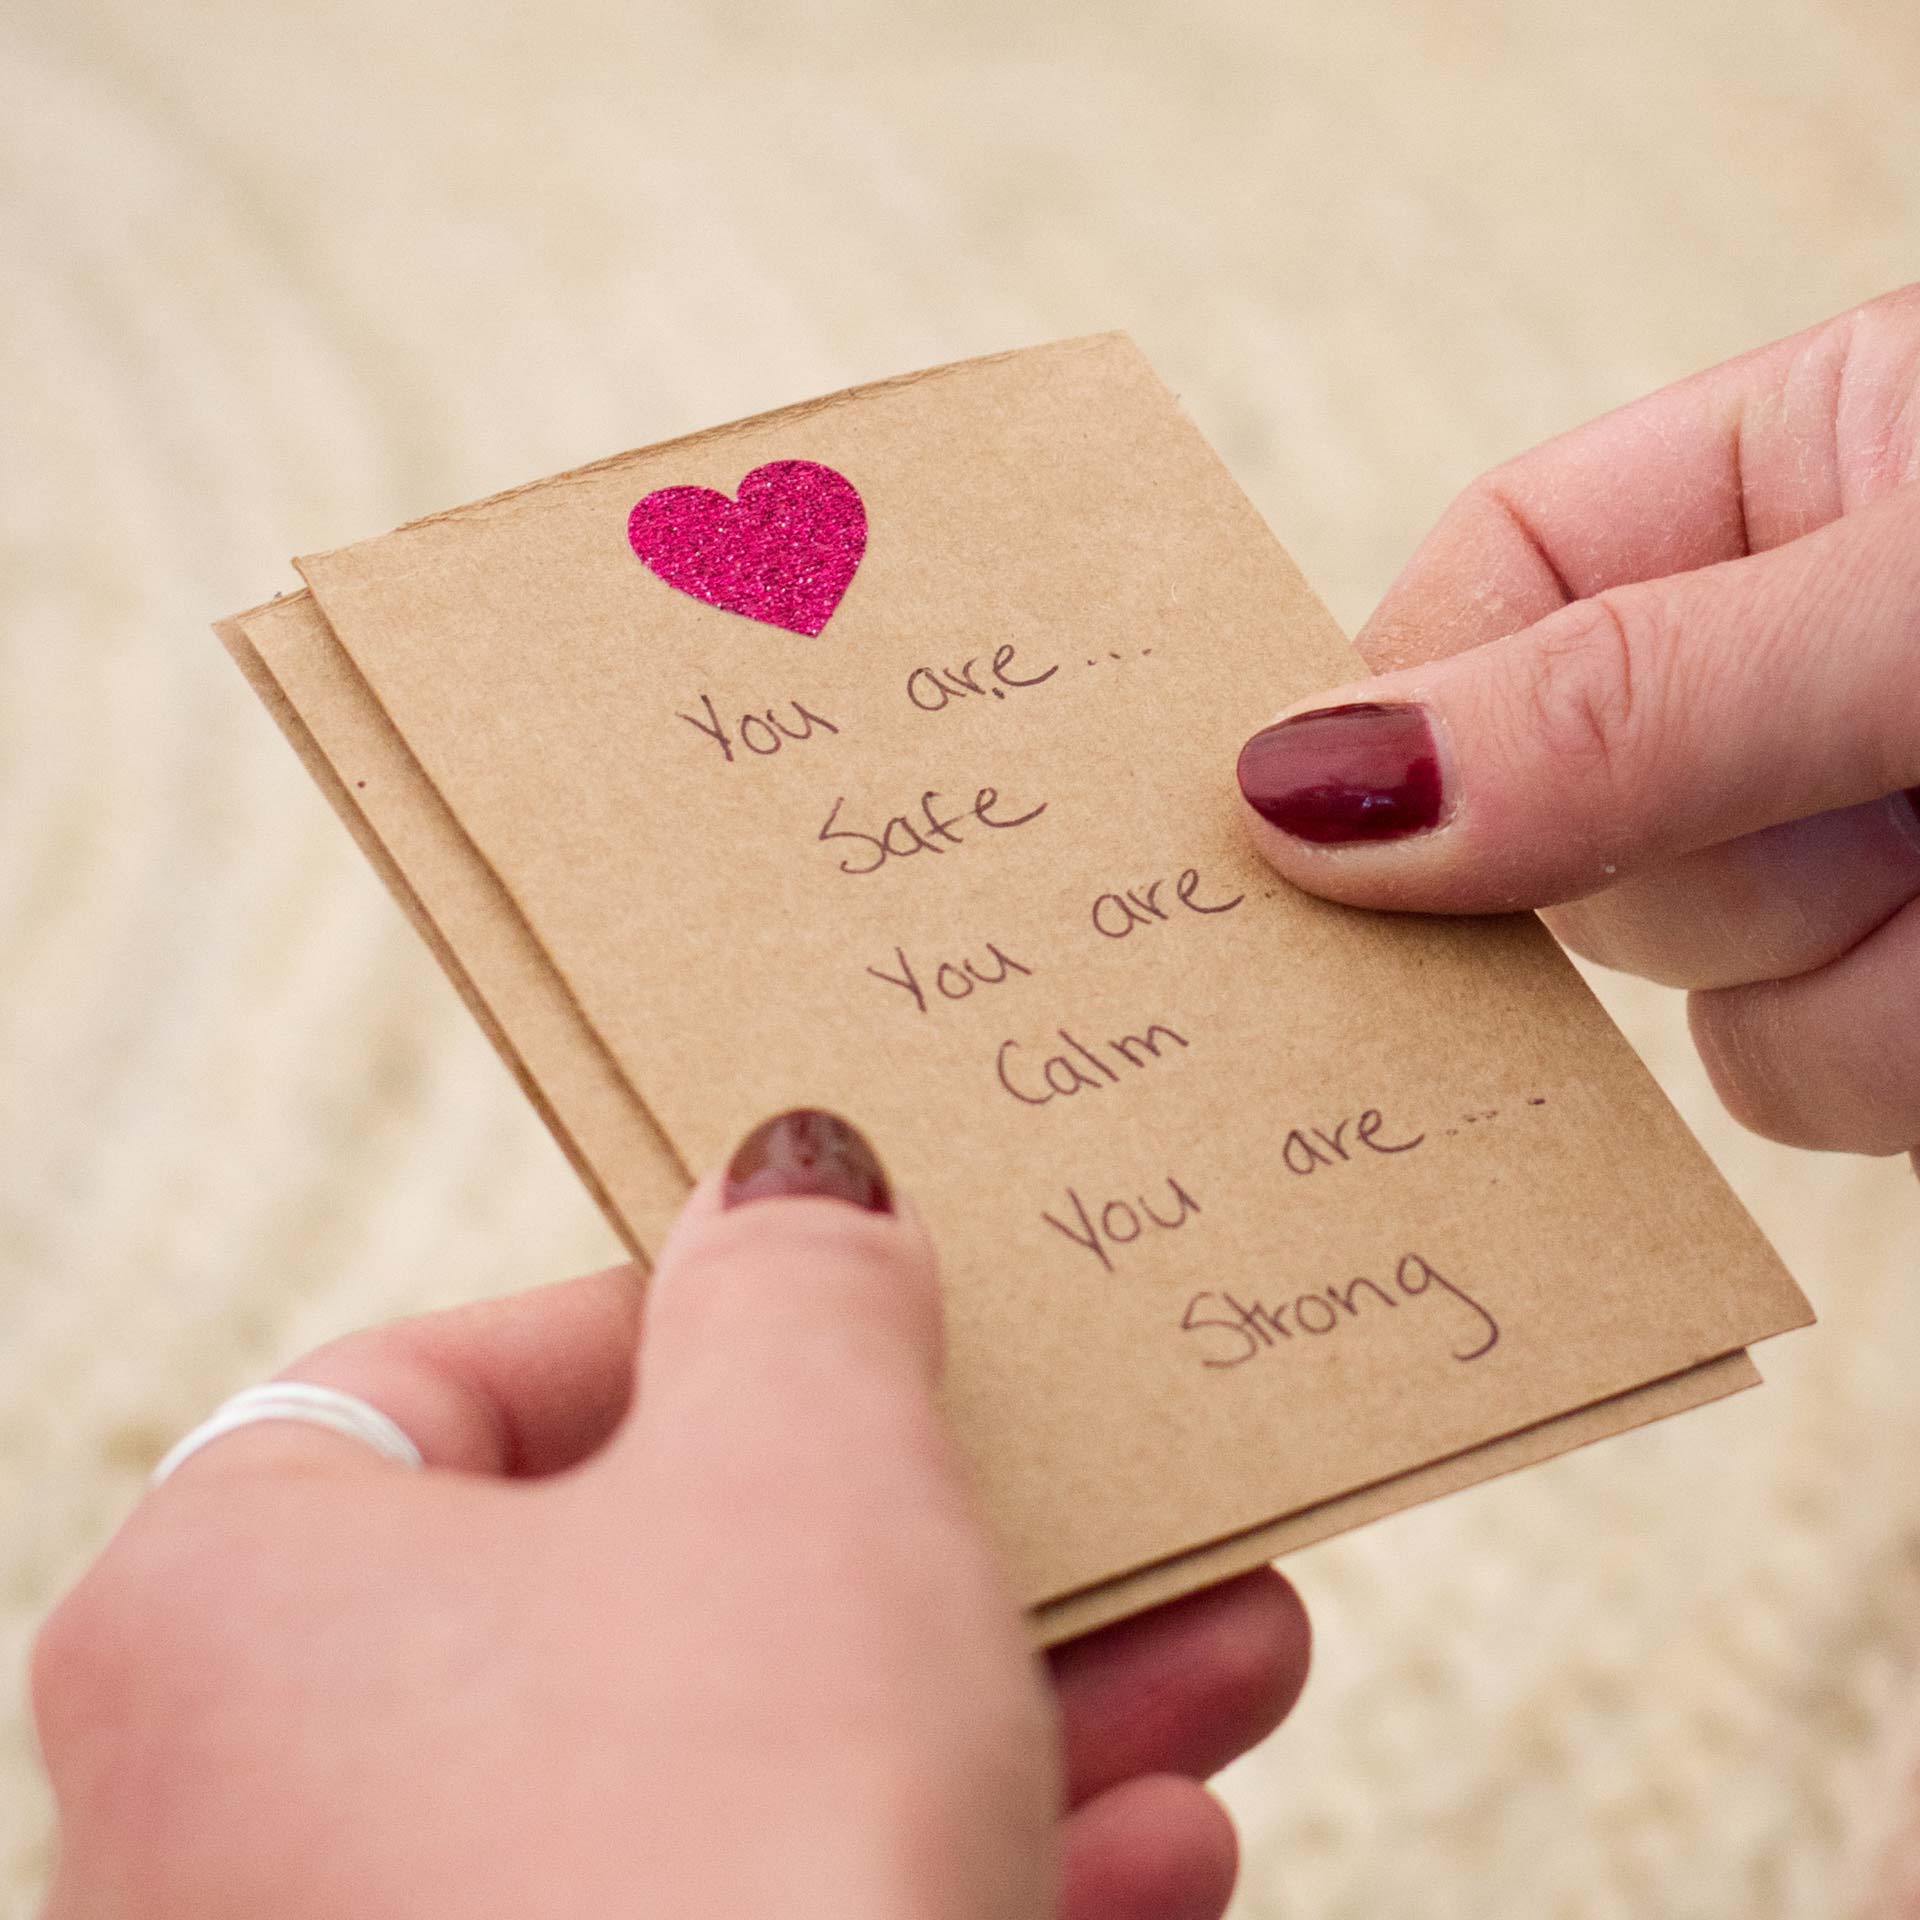 You are....
Safe
You are.
Calm
You are.....
Strong